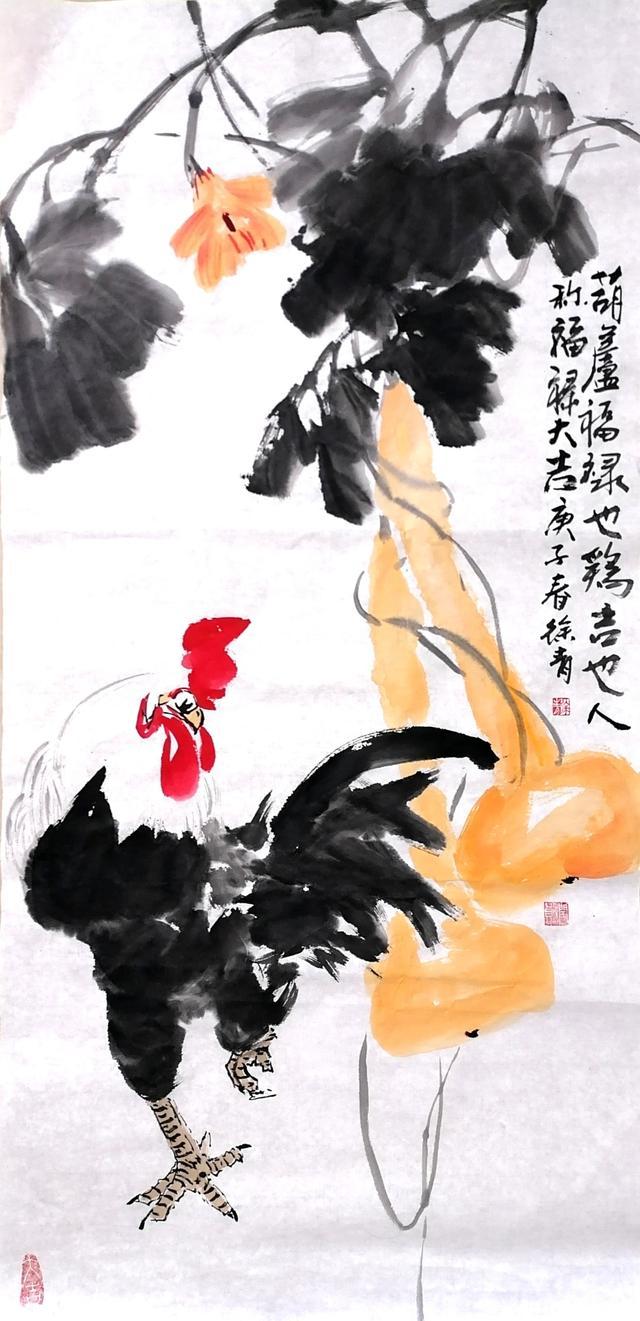 葫蘆福禄也鸡吉也人
称福禄大吉庚子春徐青